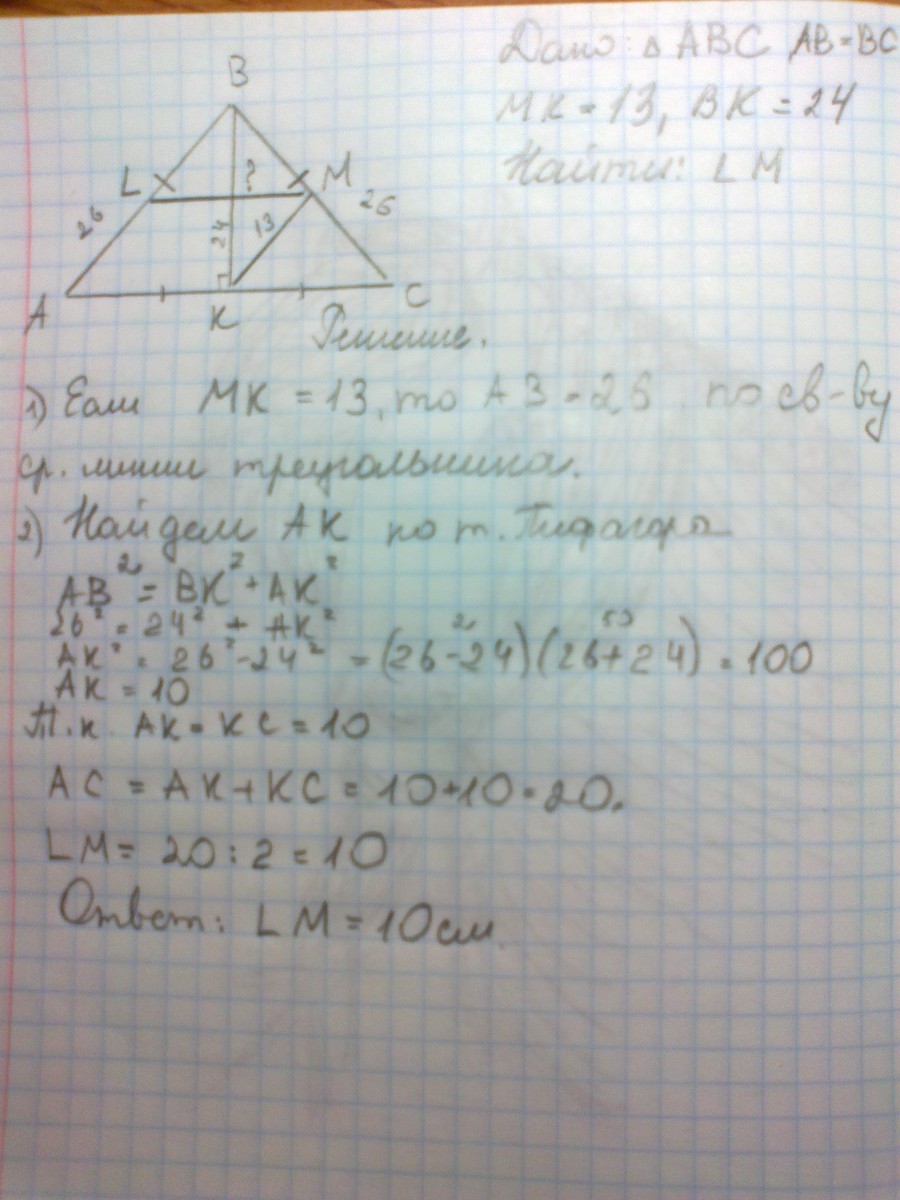 Дано: △ ABC AB=BC
MK = 13, BK = 24
Найти: LM
B
L
?
M
26
24
13
26
A
K
C
Решение.
1) Если MK = 13, то AB = 26 по св-ву
ср. линии треугольника.
2) Найдем AK по т. Пифагора
AB² = BK² + AK²
26² = 24² + AK²
2 50
AK² = 26² - 24² = (26-24)(26+24) = 100
AK = 10
Т.к. AK = KC = 10
AC = AK + KC = 10+10 = 20.
LM = 20 : 2 = 10
Ответ: LM = 10см.